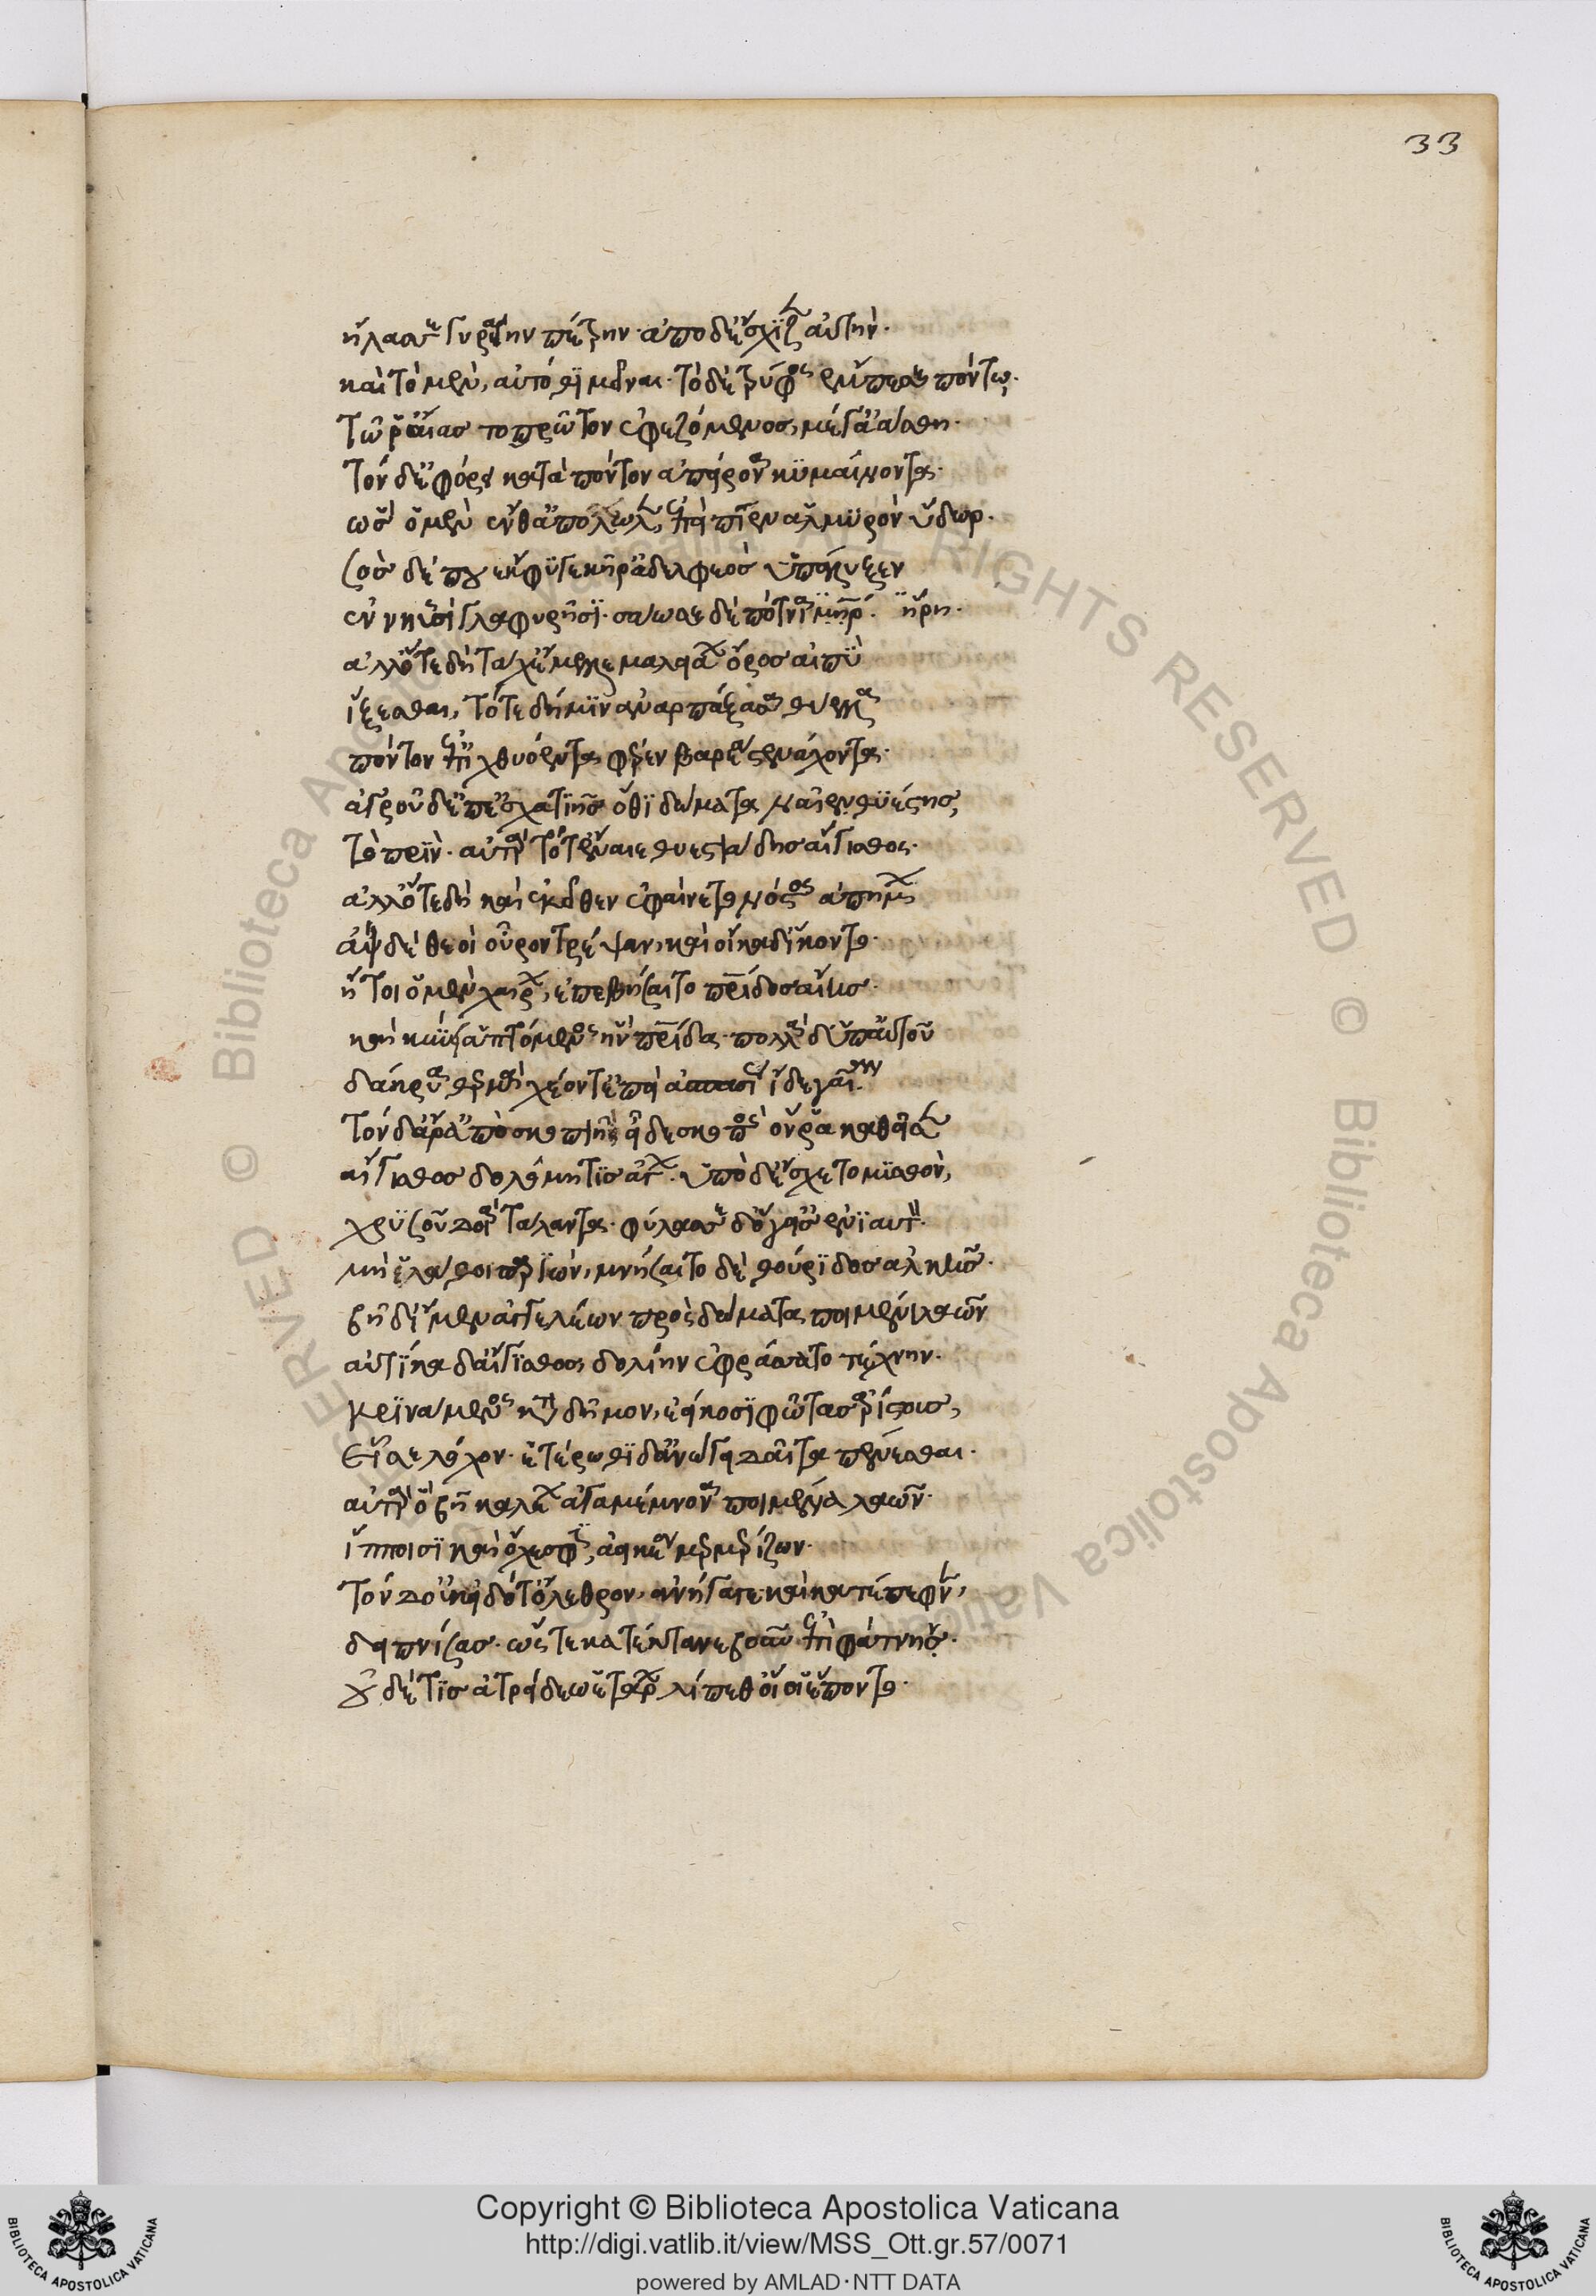 33
ἤλασε γυραίην πέτρην· ἀπὸ δ' ἔσχισεν αὐτήν·
καὶ τὸ μὲν, αὐτόθι μεῖναι· τὸ δὲ τρύφος ἔμπεσε πόντῳ·
τῷ ῥ' αἴας τὸ πρῶτον ἐφεζόμενος, μέγ' ἀάσθη·
τὸν δ' ἐφόρει κατὰ πόντον ἀπείρονα κυμαίνοντα·
ὣς ὁ μὲν ἔνθ' ἀπόλωλεν, ἐπεὶ πίεν ἁλμυρὸν ὕδωρ·
σὸς δέ που ἔκφυγε κῆρας ἀδελφεὸς ὑπάλυξεν
ἐν νηυσὶ γλαφυρῇσι· σάωσε δὲ πότνια μήτηρ· ἥρη·
ἀλλ' ὅτε δὴ τάχ' ἔμελλε μαλειάων ὄρος αἰπὺ
ἵξεσθαι, τότε δή μιν ἀναρπάξασα θύελλα
πόντον ἐπ' ἰχθυόεντα φέρεν βαρέα στενάχοντα·
ἀγροῦ δ' ἐπ' ἐσχατιῆς ὅθι δώματα ναῖε θυέστης
τὸ πρὶν· αὐτὰρ τότ' ἔναιε θυεστιάδης αἴγισθος·
ἀλλ' ὅτε δὴ καὶ ἐκεῖθεν ἐφαίνετο νόστος ἀπήμων
ἂψ δὲ θεοὶ οὖρον τρέψαν, καὶ οἴκαδ' ἵκοντο·
ἤτοι ὁ μὲν χαίρων, ἐπεβήσατο πατρίδος αἴης·
καὶ κύσεν ἁπτόμενος ἣν πατρίδα· πολλὰ δ' ὑπ' αὐτοῦ
δάκρυα θερμὰ χέοντ' ἐπεὶ ἀσπασίως ἴδε γαῖαν
τὸν δ' ἄρ' ἀπὸ σκοπιῆς εἶδε σκοπὸς ὅν ῥα καθεῖσεν
αἴγισθος δολόμητις ἄγων· ὑπὸ δ' ἔσχετο μισθὸν,
χρυσοῦ δοιὰ τάλαντα· φύλασσε δ' ὅγ' εἰς ἐνιαυτόν·
μή ἑ λάθοι παριών, μνήσαιτο δὲ θούριδος ἀλκῆς·
βῆ δ' ἴμεν ἀγγελέων πρὸς δώματα ποιμένι λαῶν
αὐτίκα δ' αἴγισθος δολίην ἐφράσσατο τέχνην·
κρινάμενος κατὰ δῆμον, ἐείκοσι φῶτας ἀρίστους,
εἷσε λόχον· ἑτέρωθι δ' ἀνώγει δαῖτα πένεσθαι·
αὐτὰρ ὁ βῆ καλέων ἀγαμέμνονα ποιμένα λαῶν·
ἵπποισι καὶ ὄχεσφιν, ἀεικέα μερμηρίζων·
τὸν δ' οὐκ εἰδότ' ὄλεθρον, ἀνήγαγε καὶ κατέπεφνεν,
δειπνίσας· ὥς τε κατέκτανε βοῦν ἐπὶ φάτνης·
οὐδέ τις ἀτρείδεω ἑτάρων λίπεθ' οἵ οἱ ἕποντο·
Copyright © Biblioteca Apostolica Vaticana
http://digi.vatlib.it/view/MSS_Ott.gr.57/0071
powered by AMLAD·NTT DATA